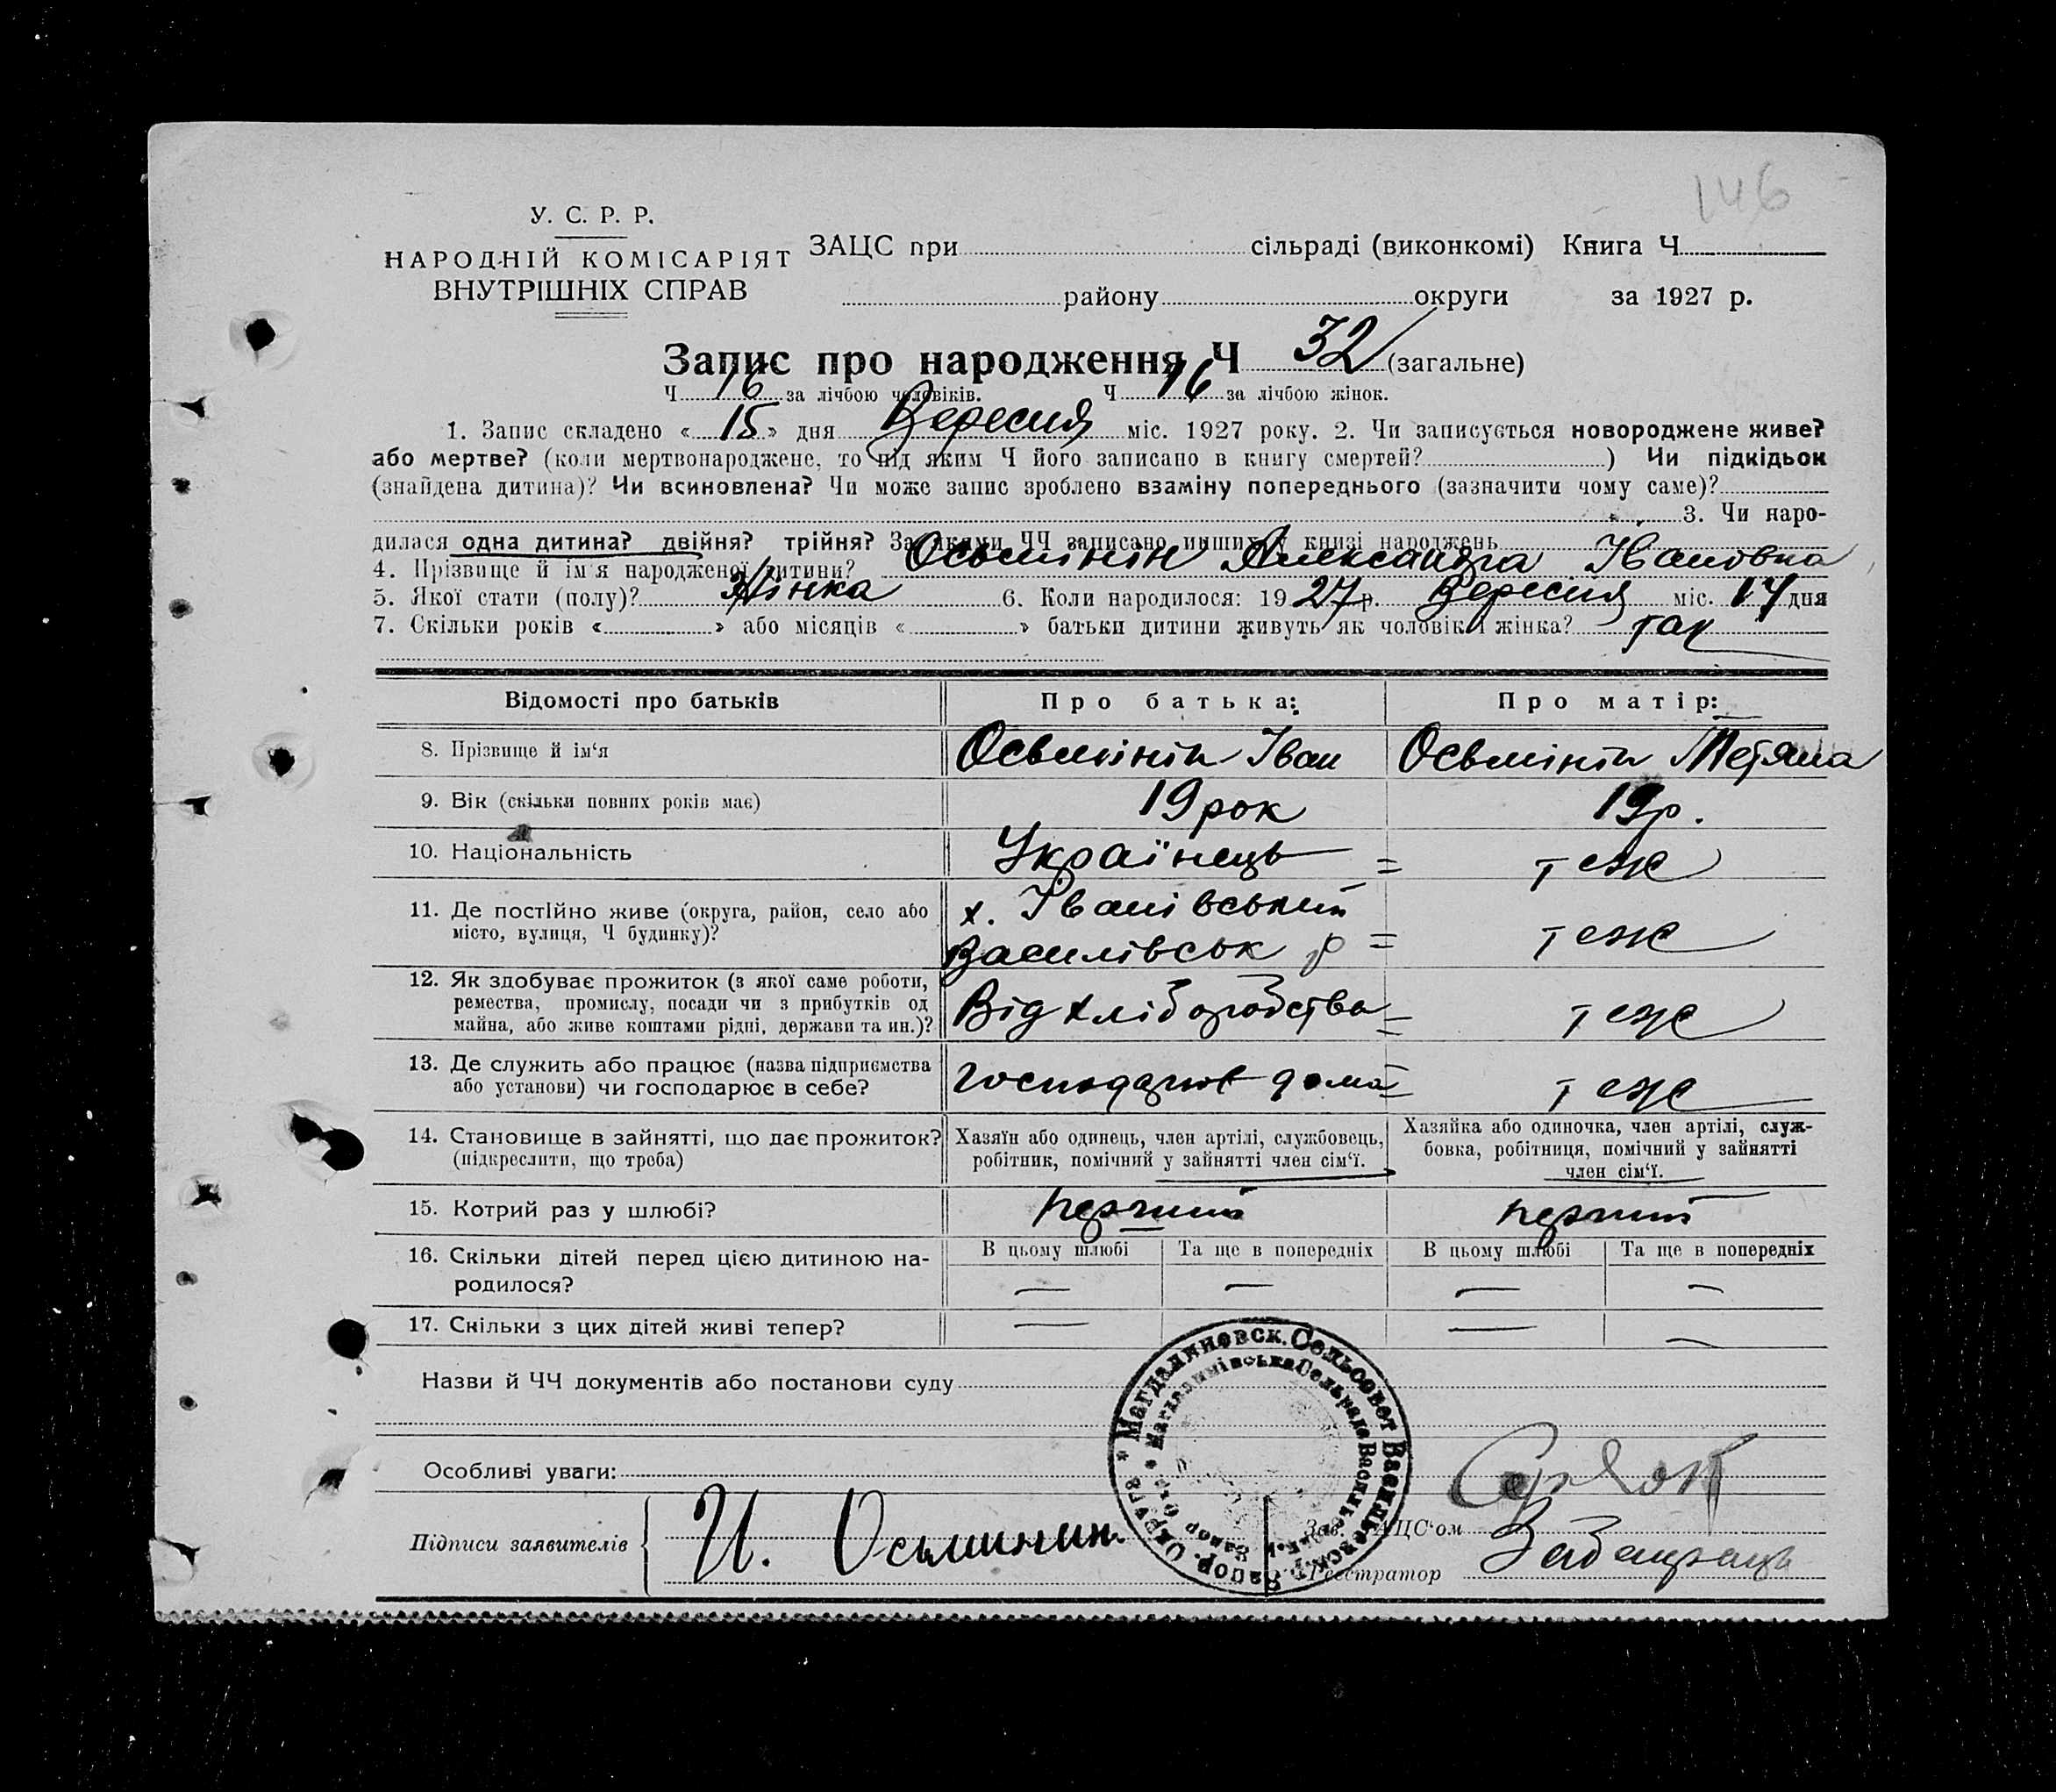 146
У. С. Р. Р.
НАРОДНІЙ КОМІСАРІЯТ
ВНУТРІШНІХ СПРАВ
ЗАЦС при сільраді (виконкомі) Книга Ч
району округи за 1927 р.
Запис про народження Ч 32 (загальне)
Ч 16 за лічбою чоловіків. Ч 16 за лічбою жінок.
1. Запис складено « 15 » дня Вересня міс. 1927 року. 2. Чи записується новороджене живе?
або мертве? (коли мертвонароджене, то під яким Ч його записано в книгу смертей? ) Чи підкідьок
(знайдена дитина)? Чи всиновлена? Чи може запис зроблено взаміну попереднього (зазначити чому саме)?
3. Чи наро-
дилася одна дитина? двійня? трійня? За якими ЧЧ записано инших у книзі народжень
4. Прізвище й ім'я народженої дитини? Осьмінін Александра Івановна
5. Якої стати (полу)? Жінка 6. Коли народилося: 19 27 р. Вересня міс. 14 дня
7. Скільки років « » або місяців « » батьки дитини живуть як чоловік і жінка? так
Відомості про батьків Про батька: Про матір:
8. Прізвище й ім'я Осьмінін Іван Осьмінін Тетяна
9. Вік (скільки повних років має) 19 рок 19 р.
10. Національність Українець = теж
11. Де постійно живе (округа, район, село або
місто, вулиця, Ч будинку)?
х. Іванівський
Василівськ р = теж
12. Як здобуває прожиток (з якої саме роботи,
ремества, промислу, посади чи з прибутків од
майна, або живе коштами рідні, держави та ин.)?
Від хліборобства = теж
13. Де служить або працює (назва підприємства
або установи) чи господарює в себе?
господарює дома = теж
14. Становище в зайнятті, що дає прожиток?
(підкреслити, що треба)
Хазяїн або одинець, член артілі, службовець,
робітник, помічний у зайнятті член сім'ї.
Хазяйка або одиночка, член артілі, служ-
бовка, робітниця, помічний у зайнятті
член сім'ї.
15. Котрий раз у шлюбі? перший перший
16. Скільки дітей перед цією дитиною на-
родилося?
В цьому шлюбі Та ще в попередніх В цьому шлюбі Та ще в попередніх
— — — —
17. Скільки з цих дітей живі тепер? — — —
Назви й ЧЧ документів або постанови суду
Особливі уваги:
Підписи заявителів И. Осьминин
Зав. ЗАЦС'ом
Реєстратор
* Магдалиновск. Сельсовет Васильевск. р. Запор. Округа
* Магдалинівська Сельрада Васильевськ. р. Запор Окр